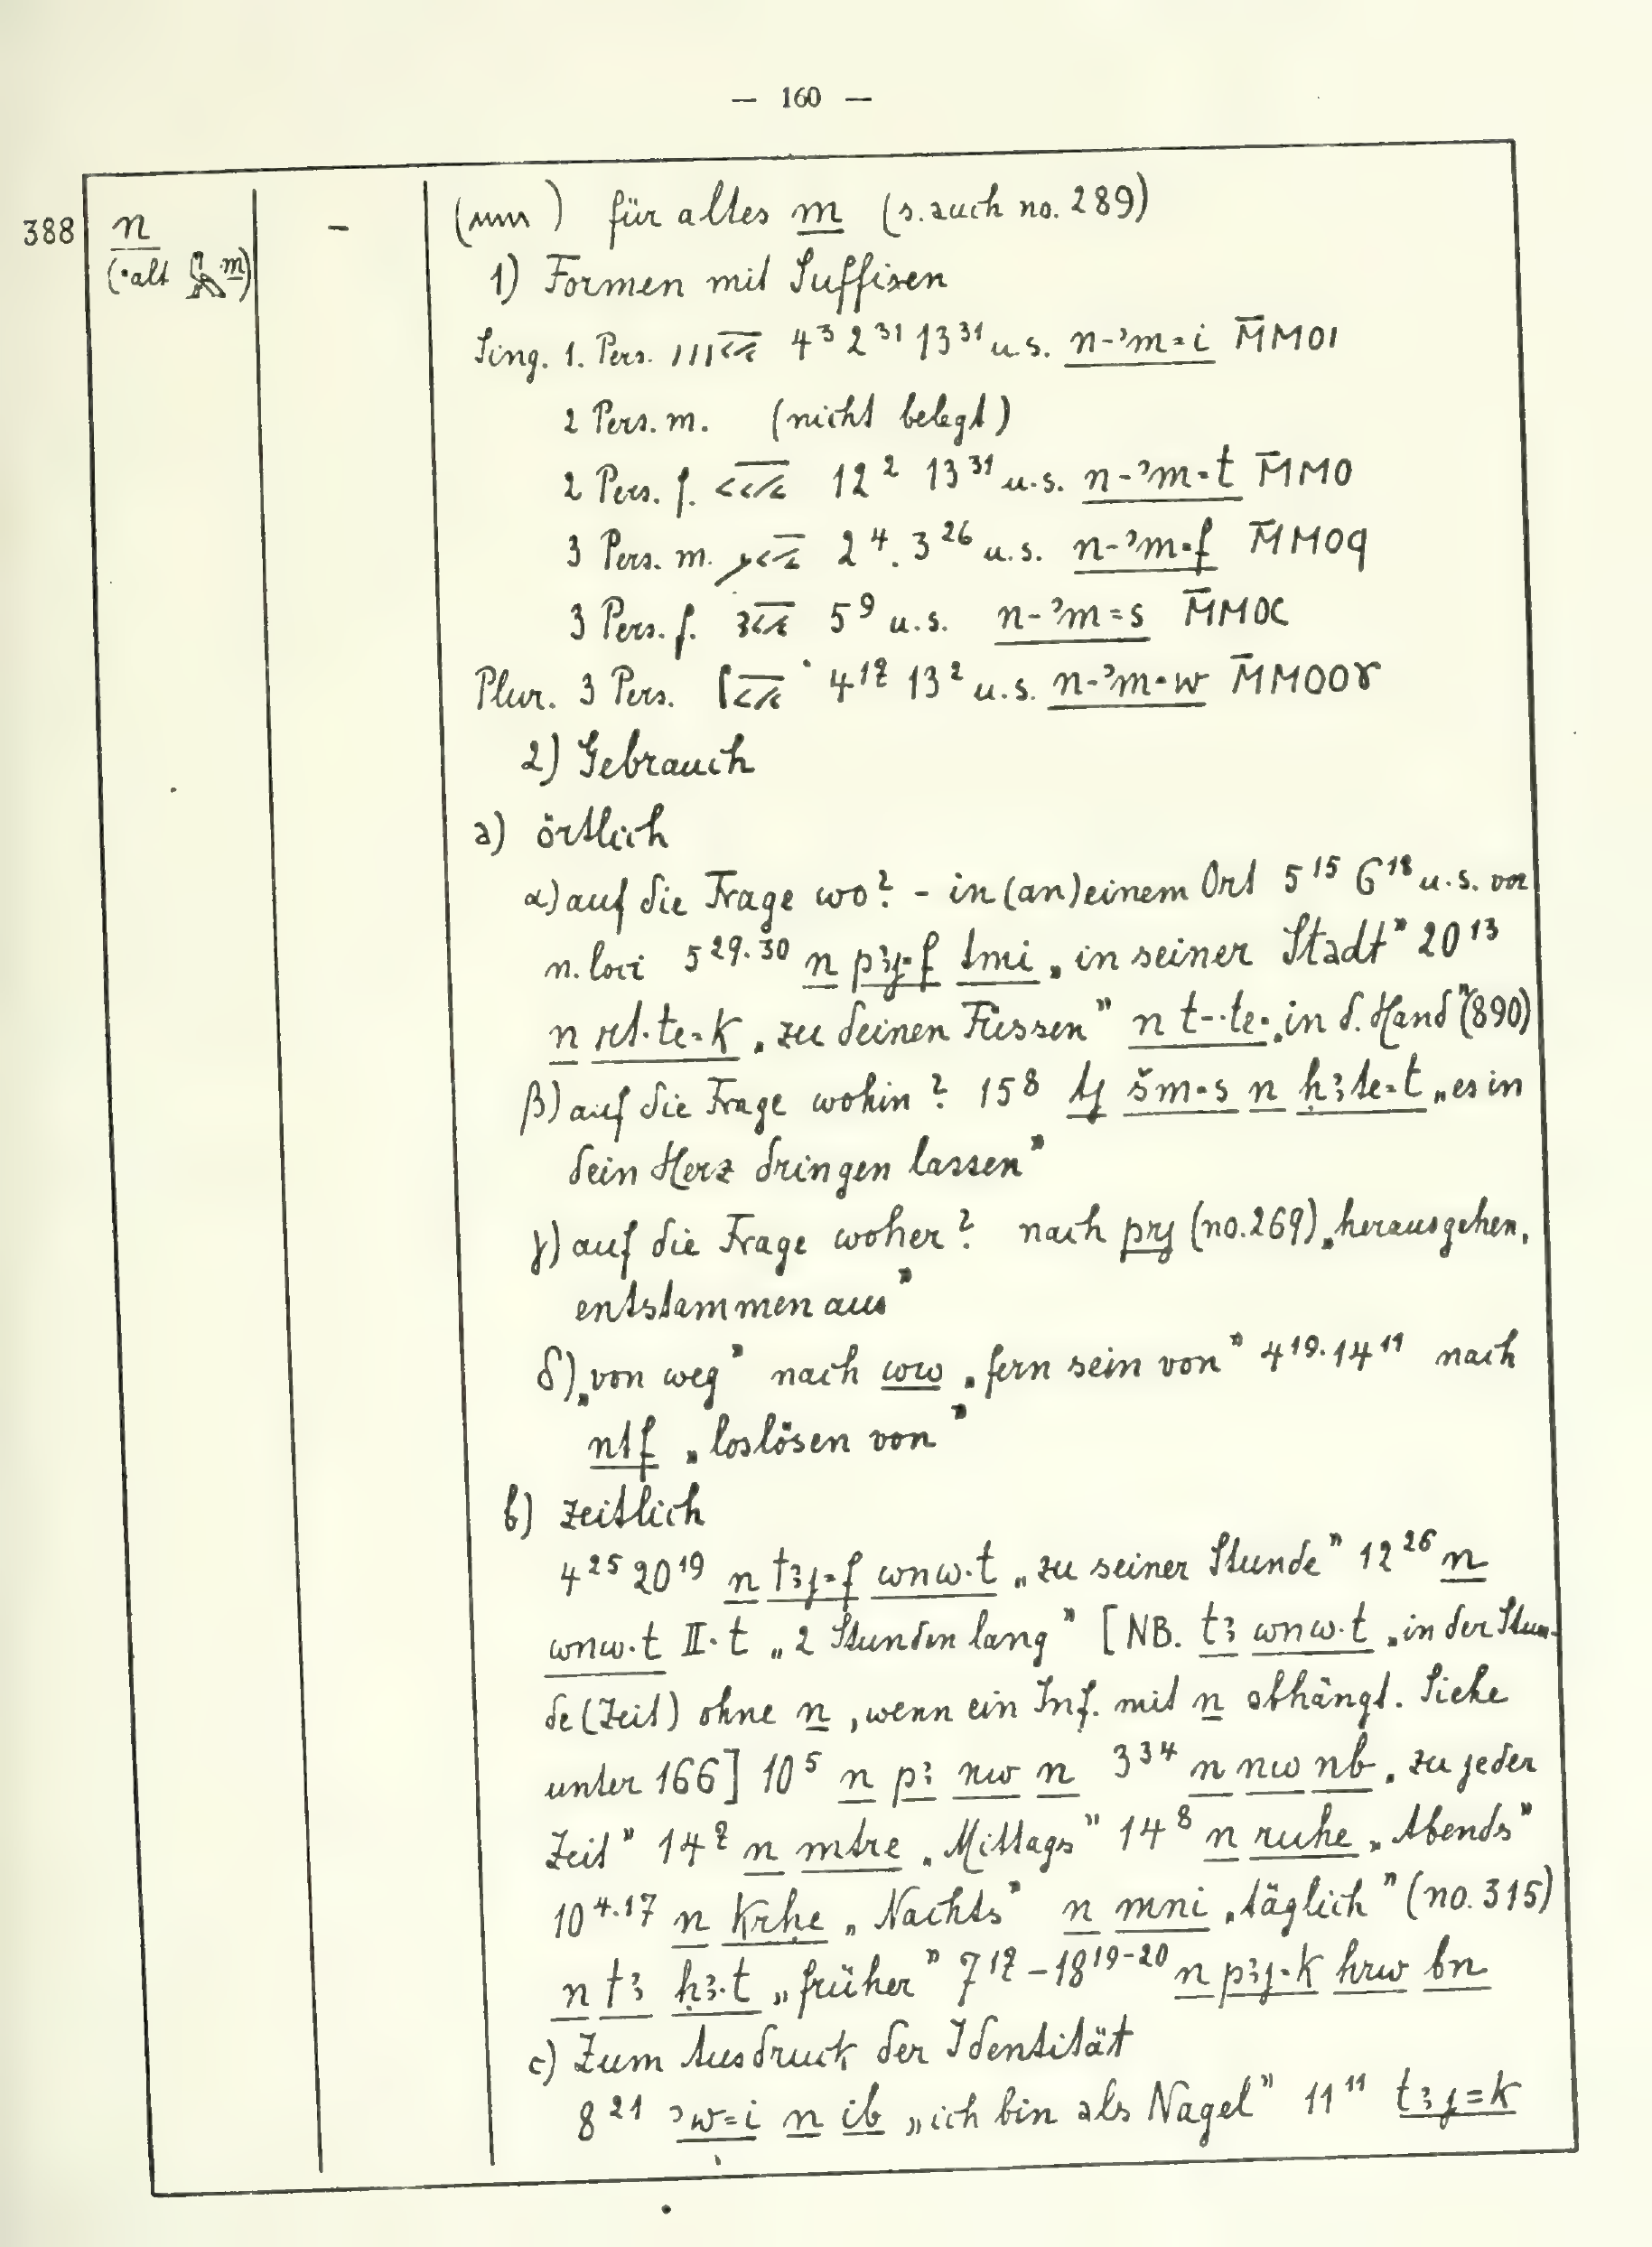 — 160 —
388 n – (mm) für altes m (s. auch no. 289)
(·alt m)
1) Formen mit Suffixen
Sing. 1. Pers. 4³ 2³¹ 13³¹ u.s. n-ʾm=i M̄MOI
2 Pers. m. (nicht belegt)
2 Pers. f. 12² 13³¹ u.s. n-ʾm·t M̄MO
3 Pers. m. 2⁴. 3²⁶ u.s. n-ʾm·f M̄MOq
3 Pers. f. 5⁹ u.s. n-ʾm=s M̄MOC
Plur. 3 Pers. 4¹⁷ 13² u.s. n-ʾm·w M̄MOOϒ
2) Gebrauch
a) örtlich
α) auf die Frage wo? - in (an) einem Ort 5¹⁵ 6¹⁸ u.s. vor
n. loci 5²⁹·³⁰ n pꜣj·f tmi „in seiner Stadt” 20¹³
n rt·te=k „zu deinen Füssen” n t-·te· „in d. Hand” (890)
β) auf die Frage wohin? 15⁸ tj šm·s n ḥꜣte=t „es in
dein Herz dringen lassen”
γ) auf die Frage woher? nach prj (no. 269) „herausgehen,
entstammen aus”
δ) „von weg” nach ww „fern sein von” 4¹⁹·14¹¹ nach
ntf „loslösen von”
b) zeitlich
4²⁵ 20¹⁹ n tꜣj=f wnw·t „zu seiner Stunde” 12²⁶ n
wnw·t II·t „2 Stunden lang” [NB. tꜣ wnw·t „in der Stun-
de (Zeit) ohne n, wenn ein Inf. mit n abhängt. Siehe
unter 166] 10⁵ n pꜣ nw n 3³⁴ n nw nb „zu jeder
Zeit” 14⁷ n mtre „Mittags” 14⁸ n ruhe „Abends”
10⁴·¹⁷ n Krḥe „Nachts” n mni „täglich” (no. 315)
n tꜣ ḥꜣ·t „früher” 7¹⁷ – 18¹⁹⁻²⁰ n pꜣj·k hrw bn
c) Zum Ausdruck der Identität
8²¹ ʾw=i n ib „ich bin als Nagel” 11¹¹ tꜣj=k